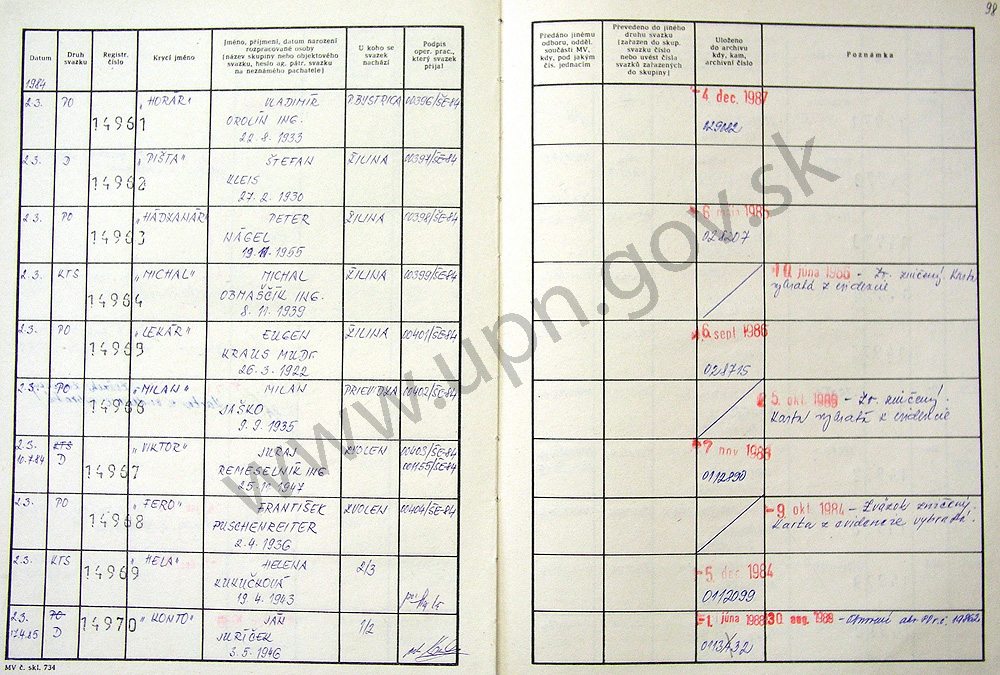 98
Datum
Druh svazku
Registr. číslo
Krycí jméno
Jméno, příjmení, datum narození
rozpracované osoby
(název skupiny nebo objektového
svazku, heslo ag. pátr. svazku
na neznámého pachatele)
U koho se
svazek
nachází
Podpis
oper. prac.,
který svazek
přijal
Předáno jinému
odboru, odděl.
součásti MV,
kdy, pod jakým
čís. jednacím
Převedeno do jiného
druhu svazku
(zařazen do skup.
svazku číslo
nebo uvést čísla
svazků zařazených
do skupiny)
Uloženo
do archivu
kdy, kam,
archivní číslo
Poznámka
1984
2.3. PO 14961 "HORÁR" VLADIMÍR P.BYSTRICA 00396/ŠE-84 -4 dec. 1987
OROLÍN ING.
22.8.1933
2.3. D 14962 "PIŠTA" ŠTEFAN ŽILINA 00397/ŠE-84
KLEIS
27.2.1930
2.3. PO 14963 PETER ŽILINA 00398/ŠE-84
NÁGEL 028207
19.11.1955
2.3. KTS 14964 "MICHAL" MICHAL ŽILINA 00399/ŠE-84 - Zv. zničený. Karta
OBMAŠČÍK ING. vybratá z evidencie
8.11.1939
2.3. PO "LEKÁR" EUGEN ŽILINA 00401/ŠE-84 -6 sept 1986
KRAUS MUDr. 028715
26.3.1922
2.3. PO "MILAN" MILAN PRIEVIDZA 00402/ŠE-84 - Zv. zničený.
JAŠKO Karta vybratá z evidencie
9.9.1935
2.3. KTS 14967 "VIKTOR" JURAJ ZVOLEN 00403/ŠE-84
10.7.84 D REMESELNÍK ING 0112890
25.10.1947
2.3. PO 14968 "FERO" FRANTIŠEK ZVOLEN 00404/ŠE-84 -9. okt. 1984 - Zväzok zničený.
PUSCHENREITER Karta z evidence vybratá.
2.4.1936
2.3. KTS 14969 "HELA" HELENA 2/3 -5. dec. 1984
KUKUČKOVÁ 0112099
19.4.1943
2.3. PO 14970 "KONTO" JÁN 1/2 -1. júna 1988 30 aug. 1988
17.4.85 D JURÍČEK
3.5.1946
MV č. skl. 734
www.upn.gov.sk